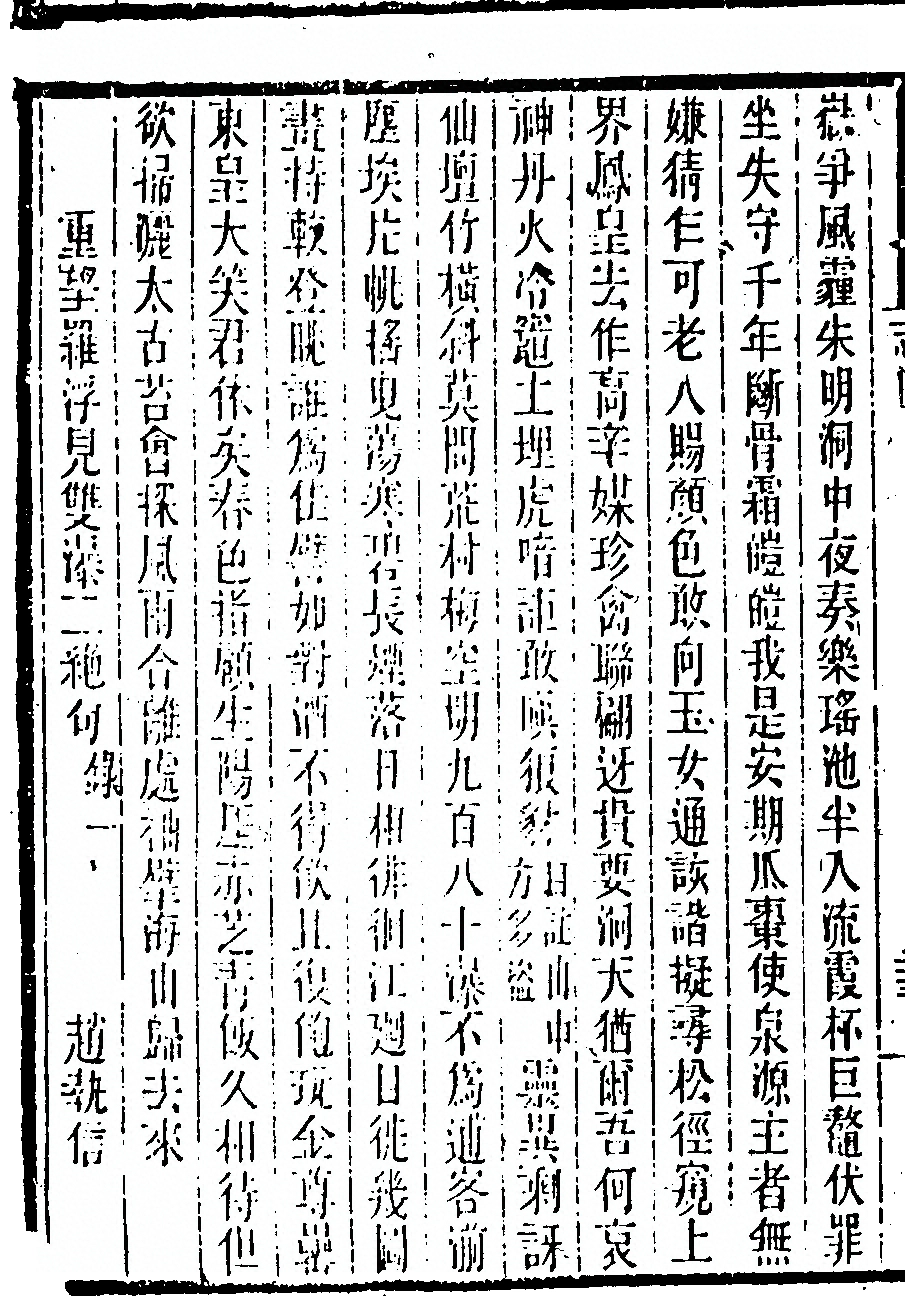 嶽爭風霾朱明洞中夜奏樂瑤池半入流霞杯巨鼇伏罪
坐失守千年斷骨霜皚皚我是安期瓜棗使泉源主者無
嫌猜乍可老人賜顏色敢向玉女通詼諧擬尋松徑窺上
界鳳皇去作高辛媒珍禽聯翩迓貴要洞天猶爾吾何哀
神丹火冷竈土埋虎喑詎敢嗔狠豺自註山中方多盜靈異剩訝
仙壇竹橫斜莫問荒村梅空明九百八十瀑不為逋客湔
塵埃片帆搖曳蕩寒碧長煙落日相徘徊江迴日徙幾圖
畫持較登眺誰為佳譬如對酒不得飲且復飽玩金尊罍
東皇大笑君休矣春色指顧生陽厓赤芝暫飯久相待但
欲掃灑太古苔會採風雨合離處袖擘海山歸去來
重望羅浮見雙瀑二絕句錄一 趙執信